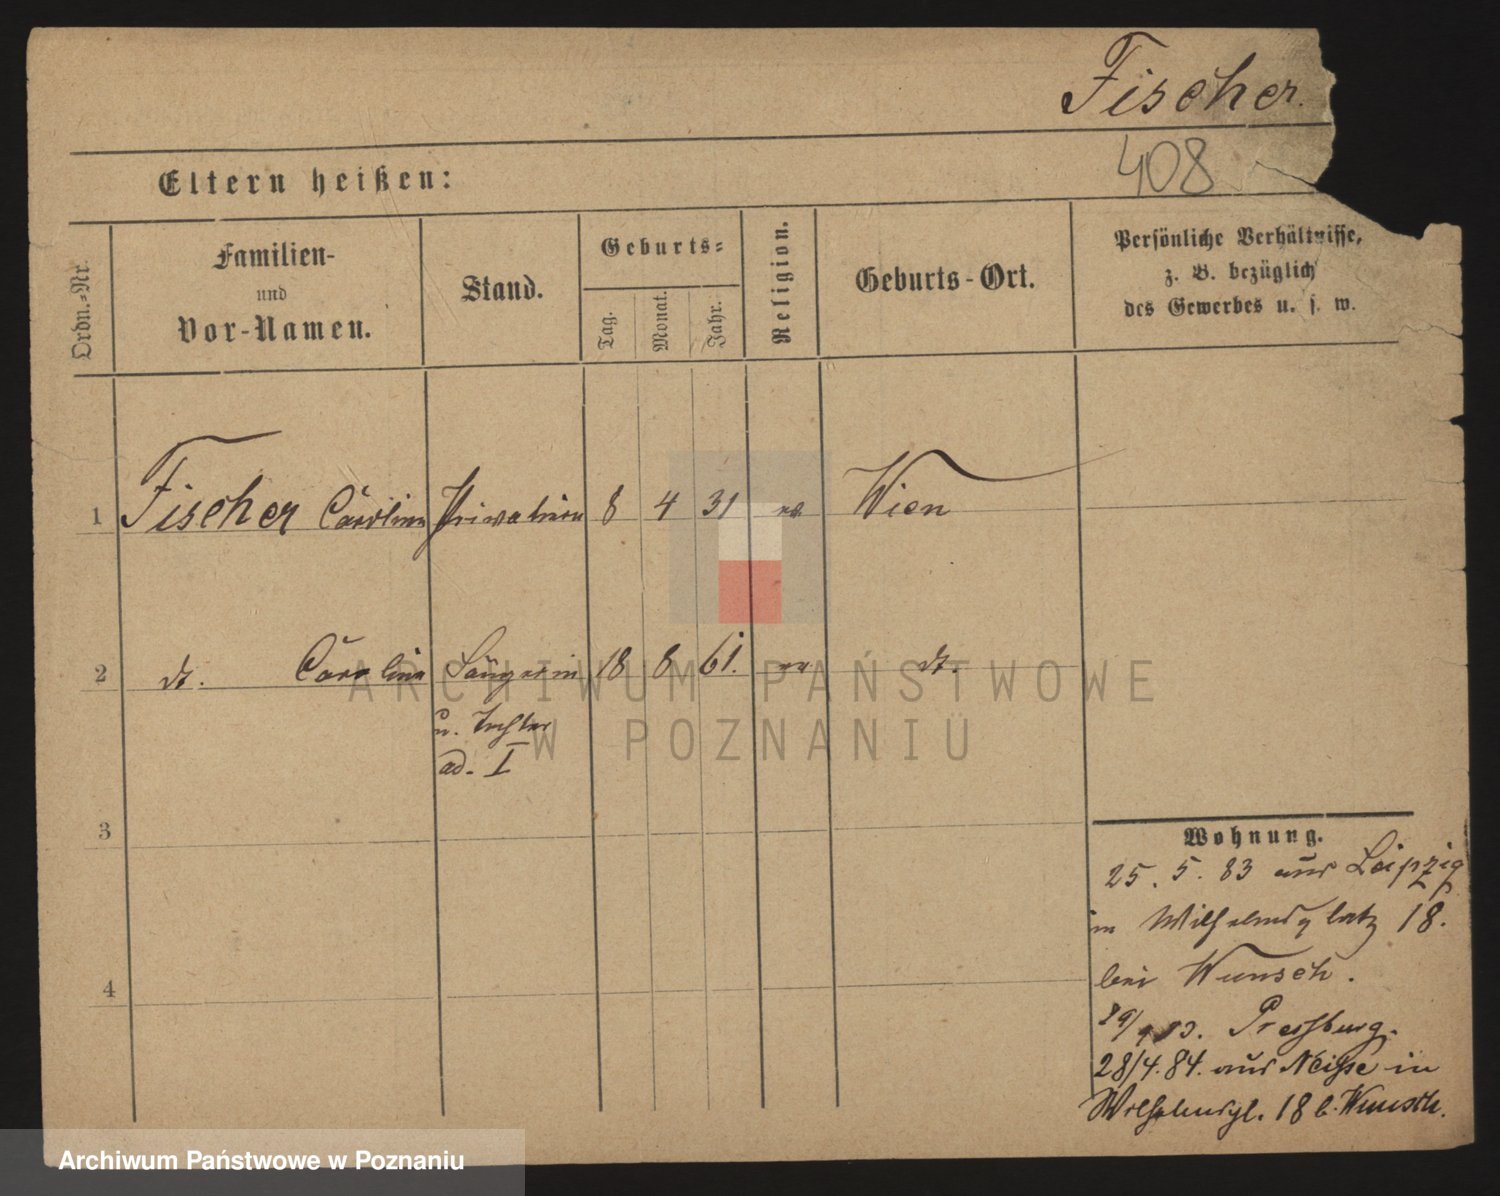 Fischer.
408
Eltern heißen:
Ordn.-Nr.
Familien-
und
Vor-Namen.
Stand.
Geburts-
Tag.
Monat.
Jahr.
Religion.
Geburts-Ort.
Persönliche Verhältnisse,
z. B. bezüglich
des Gewerbes u. s. w.
1 Fischer Caroline Privatiere 8 4 31 Wien
2 dt. Caroline Sängerin 18 8 61. dt.
u. Tochter
ad. I
3
4
Wohnung.
25. 5. 83 aus Leipzig
in Wilhelmsplatz 18.
bei Wunsch.
Pressburg.
28/4. 84. aus Neisse in
Wilhelmspl. 18 b. Wunsch.
ARCHIWUM PAŃSTWOWE
W POZNANIU
Archiwum Państwowe w Poznaniu